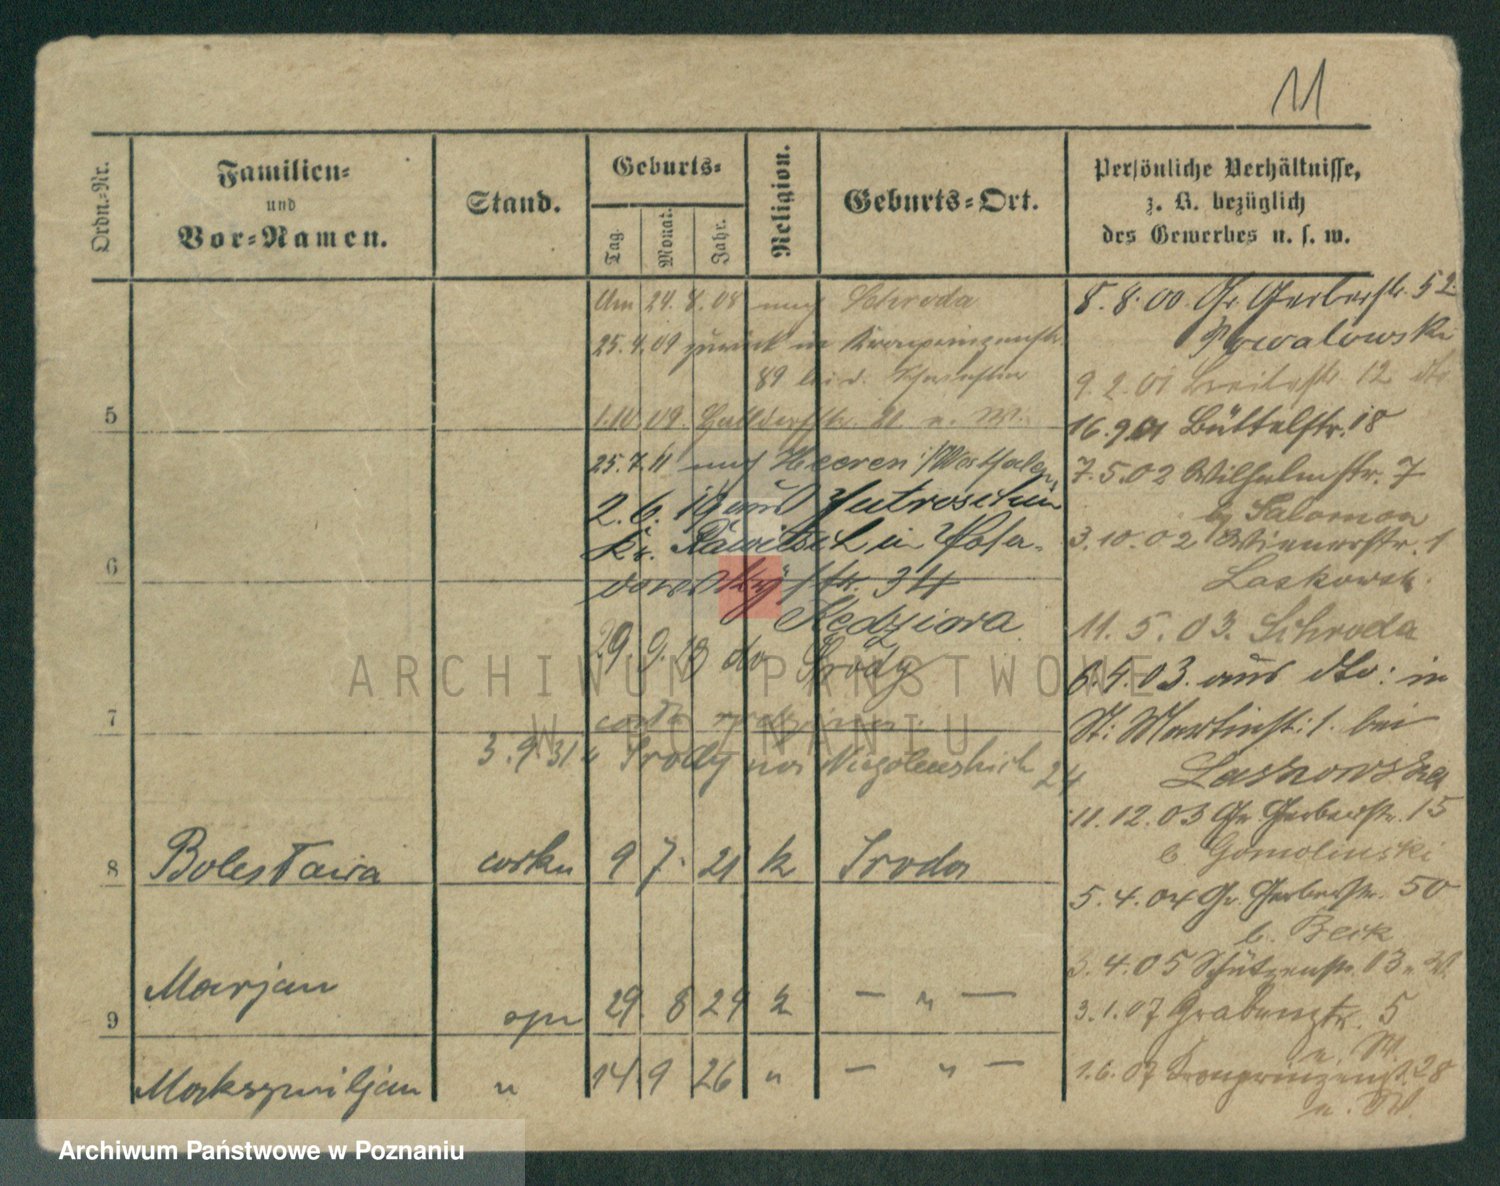 11
Ordn.-Nr.
Familien-
und
Vor-Namen.
Stand.
Geburts-
Tag.
Monat.
Jahr.
Religion.
Geburts-Ort.
Persönliche Verhältnisse,
z. B. bezüglich
des Gewerbes u. s. w.
Am 24. 8. 08 nach Schroda
25.4.09 zurück in Kronprinzenstr.
89 bei d.
5
1.10.09. 21 n. W.
25.7.11 nach Heeren i/Westfalen
2. 6. 19 aus Jutroschin
Kr. Rawitsch in
6
str. 34
Kedziora
29. 9. 19 do Środy
7
3.9.31 w Środy 24
8 Bolesława córka 9 7. 21 k Środa
Marjan
9 syn 29. 8 29 k — " —
Maksymiljan " 14 9 26 " — " —
8. 8. 00. Gr. Gerberstr. 52
Nowalowski
9. 2. 01 Breitestr. 12
16.9.01 Büttelstr. 18
7.5.02 Wilhelmstr. 7
by Salomon
3.10.02 Wienerstr. 1
Laskowsk.
11. 5. 03. Schroda
6.4.03. aus dto: in
St: Martinst: 1. bei
Laskowska
11.12.03 Gr. Gerberstr. 15
b Gomolinski
5. 4. 04 Gr. Gerberstr. 50
b. Beik
3.4.05 Schützenstr. 13 n. W.
3.1.07 Grabenstr. 5
n. W.
1.6.07 Kronprinzenst. 28
n. W.
ARCHIWUM PAŃSTWOWE
W POZNANIU
Archiwum Państwowe w Poznaniu